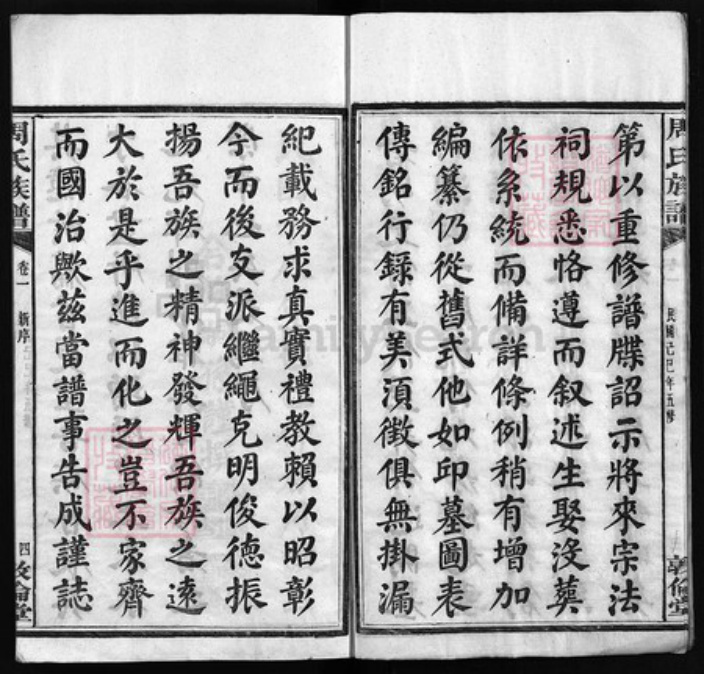 周氏族譜
民國己巳年五修
敦倫堂
第以重修譜牒詔示將來宗法
祠規悉恪遵而叙述生娶沒葬
依系統而備詳條例稍有增加
編纂仍從舊式他如邱墓圖表
傳銘行錄有美須徵俱無掛漏
紀載務求真實禮教賴以昭彰
今而後支派繼繩克明俊德振
揚吾族之精神發輝吾族之遠
大於是乎進而化之豈不家齊
而國治歟茲當譜事告成謹誌
周氏族譜
卷一
新序
四
敦倫堂
FamilySearch